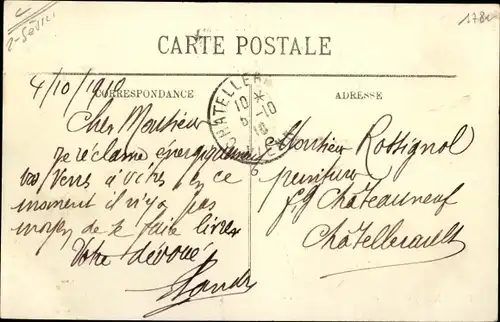 2-Sèvres
1780
CARTE POSTALE
4/10/1910
CORRESPONDANCE
ADRESSE
CHATELLER
10 *
5-10
10
VIENNE
Cher Monsieur
je réclame énergiquement
vos Verres à vitres en ce
moment il n'y a pas
moyen de se faire livrer
Votre dévoué
Monsieur Rossignol
peinture
fg Châteauneuf
Châtellerault
6